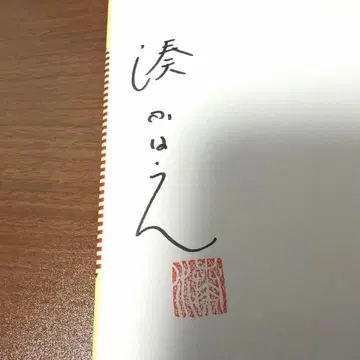 湊かなえ